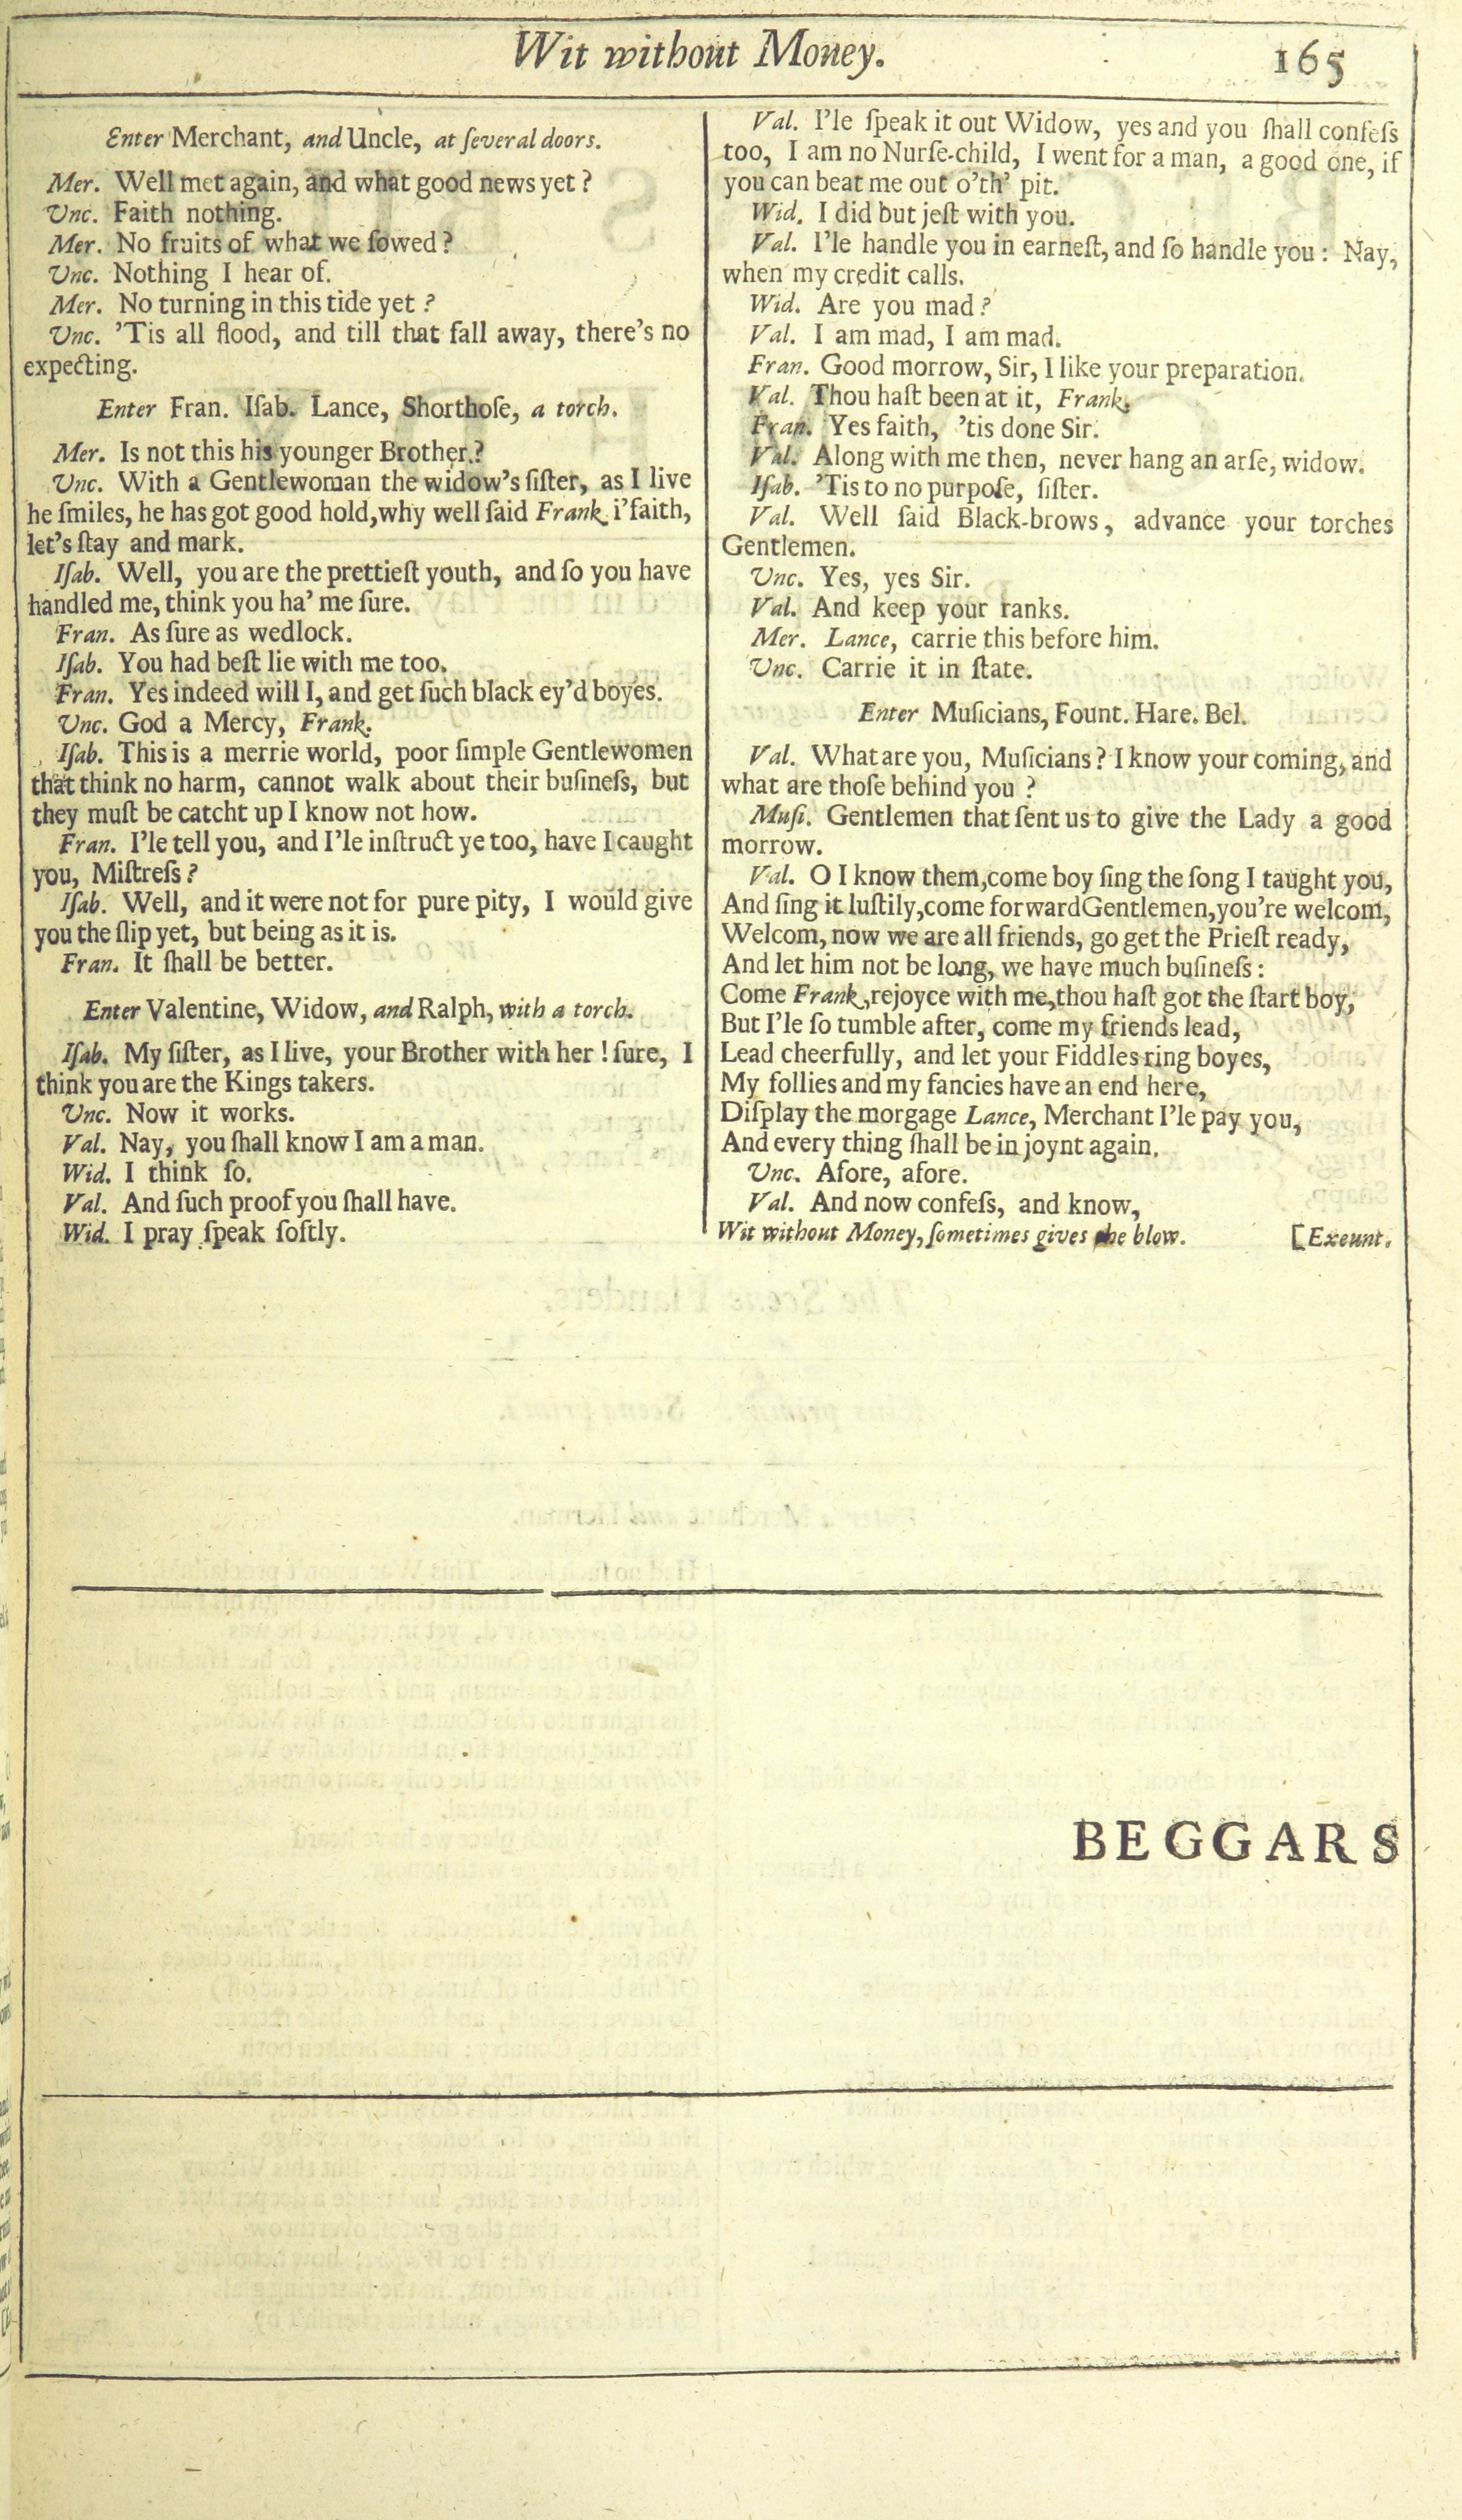 Wit without Money. 165
Enter Merchant, and Uncle, at ſeveral doors.
Mer. Well met again, and what good news yet ?
Unc. Faith nothing.
Mer. No fruits of what we ſowed ?
Unc. Nothing I hear of.
Mer. No turning in this tide yet ?
Unc. 'Tis all flood, and till that fall away, there's no
expecting.
Enter Fran. Iſab. Lance, Shorthoſe, a torch.
Mer. Is not this his younger Brother.?
Unc. With a Gentlewoman the widow's ſiſter, as I live
he ſmiles, he has got good hold,why well ſaid Frank i'faith,
let's ſtay and mark.
Iſab. Well, you are the prettieſt youth, and ſo you have
handled me, think you ha' me ſure.
Fran. As ſure as wedlock.
Iſab. You had beſt lie with me too.
Fran. Yes indeed will I, and get ſuch black ey'd boyes.
Unc. God a Mercy, Frank.
Iſab. This is a merrie world, poor ſimple Gentlewomen
that think no harm, cannot walk about their buſineſs, but
they muſt be catcht up I know not how.
Fran. I'le tell you, and I'le inſtruct ye too, have I caught
you, Miſtreſs ?
Iſab. Well, and it were not for pure pity, I would give
you the ſlip yet, but being as it is.
Fran. It ſhall be better.
Enter Valentine, Widow, and Ralph, with a torch.
Iſab. My ſiſter, as I live, your Brother with her ! ſure, I
think you are the Kings takers.
Unc. Now it works.
Val. Nay, you ſhall know I am a man.
Wid. I think ſo.
Val. And ſuch proof you ſhall have.
Wid. I pray ſpeak ſoftly.
Val. I'le ſpeak it out Widow, yes and you ſhall confeſs
too, I am no Nurſe-child, I went for a man, a good one, if
you can beat me out o'th' pit.
Wid. I did but jeſt with you.
Val. I'le handle you in earneſt, and ſo handle you : Nay,
when my credit calls.
Wid. Are you mad ?
Val. I am mad, I am mad.
Fran. Good morrow, Sir, I like your preparation.
Val. Thou haſt been at it, Frank.
Fran. Yes faith, 'tis done Sir.
Val. Along with me then, never hang an arſe, widow.
Iſab. 'Tis to no purpoſe, ſiſter.
Val. Well ſaid Black-brows, advance your torches
Gentlemen.
Unc. Yes, yes Sir.
Val. And keep your ranks.
Mer. Lance, carrie this before him.
Unc. Carrie it in ſtate.
Enter Muſicians, Fount. Hare. Bel.
Val. What are you, Muſicians ? I know your coming, and
what are thoſe behind you ?
Muſi. Gentlemen that ſent us to give the Lady a good
morrow.
Val. O I know them,come boy ſing the ſong I taught you,
And ſing it luſtily,come forwardGentlemen,you're welcom,
Welcom, now we are all friends, go get the Prieſt ready,
And let him not be long, we have much buſineſs :
Come Frank,rejoyce with me,thou haſt got the ſtart boy,
But I'le ſo tumble after, come my friends lead,
Lead cheerfully, and let your Fiddles ring boyes,
My follies and my fancies have an end here,
Diſplay the morgage Lance, Merchant I'le pay you,
And every thing ſhall be in joynt again.
Unc. Afore, afore.
Val. And now confeſs, and know,
Wit without Money, ſometimes gives the blow. [Exeunt.
BEGGARS